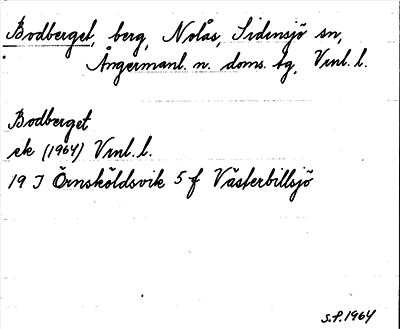 Bodberget, berg, Nolås, Sidensjö sn,
Ångermanl. n. doms. tg, Vnl. l.
Bodberget
ek (1964) Vnl. l.
19 J Örnsköldsvik 5 f Västerbillsjö
S.P. 1964